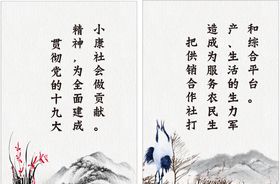 贯彻党的十九大
精神,为全面建成
小康社会做贡献。
把供销合作社打
造成为服务农民生
产、生活的生力军
和综合平台。